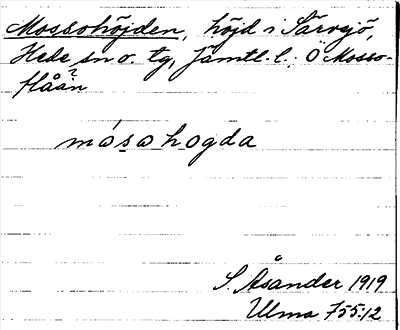 Mossohöjden, höjd i Särvsjö,
Hede sn o. tg, Jämtl. l. : Ö Mosso-
flåån?
mósohogda
S. Åsander 1919
Ulma 755:12